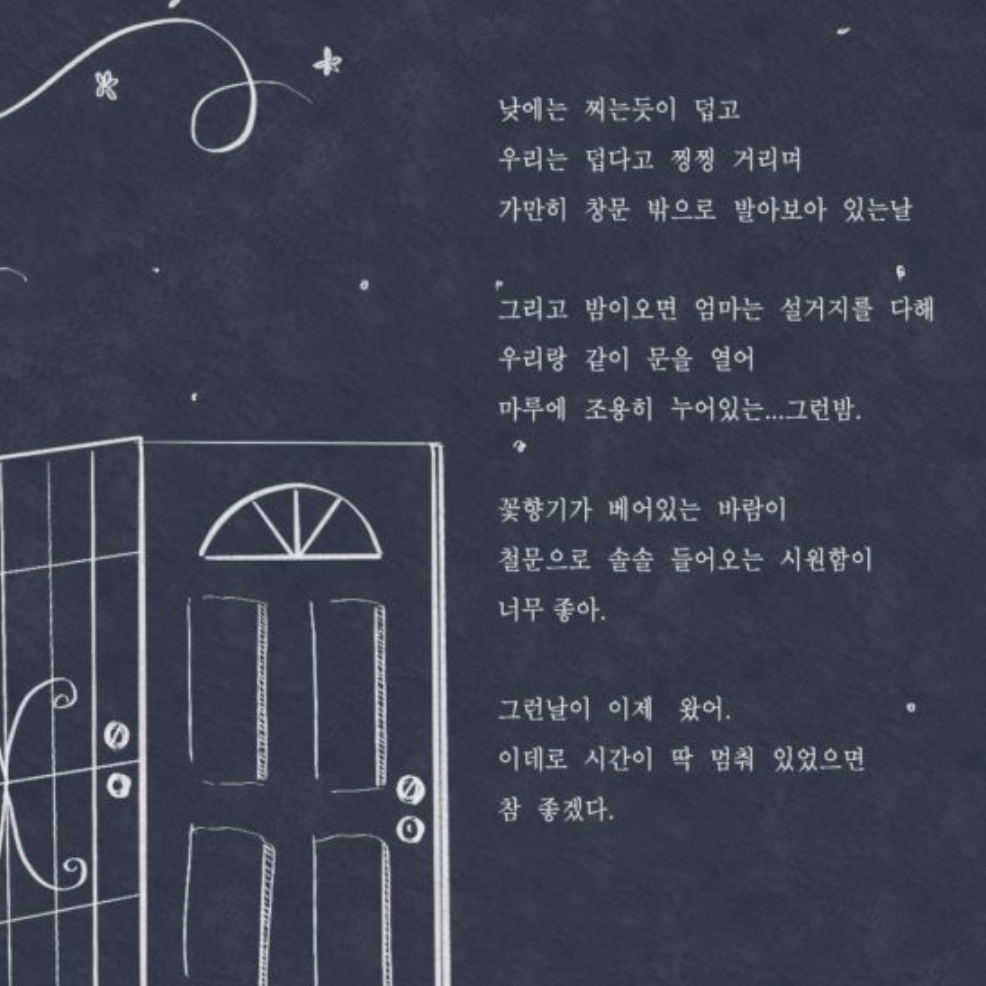 낮에는 찌는듯이 덥고
우리는 덥다고 찡찡 거리며
가만히 창문 밖으로 발아보아 있는날
그리고 밤이오면 엄마는 설거지를 다해
우리랑 같이 문을 열어
마루에 조용히 누어있는...그런밤.
꽃향기가 베어있는 바람이
철문으로 솔솔 들어오는 시원함이
너무 좋아.
그런날이 이제 왔어.
이데로 시간이 딱 멈춰 있었으면
참 좋겠다.